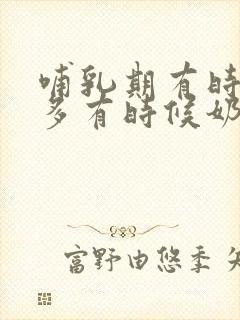 哺乳期有時
多有時候奶
富野由悠季